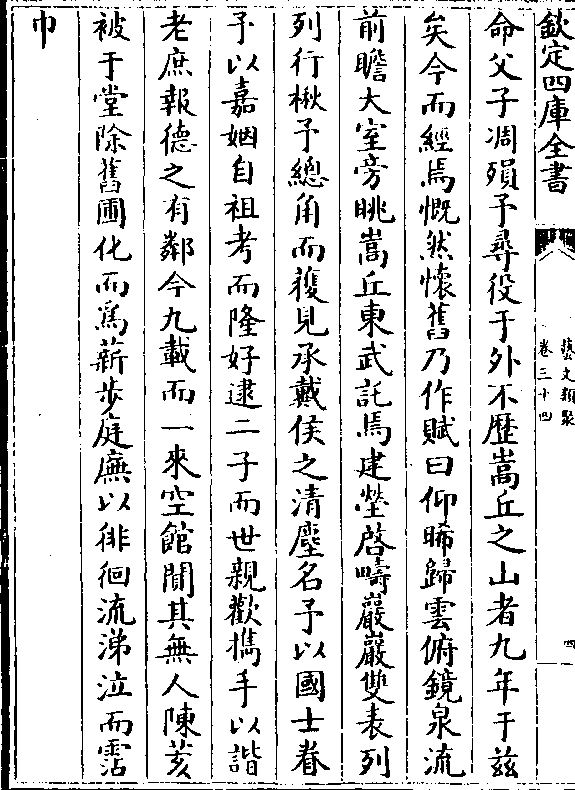 欽定四庫全書
藝文類聚
卷三十四
四
命父子凋殞予尋役于外不歷嵩丘之山者九年于兹
矣今而經焉慨然懷舊乃作賦曰仰睎歸雲俯鏡泉流
前瞻大室旁眺嵩丘東武託焉建塋啓疇巖巖雙表列
列行楸予總角而獲見承戴侯之清塵名予以國士眷
予以嘉姻自祖考而隆好逮二子而世親歡携手以諧
老庶報德之有鄰今九載而一來空館闃其無人陳荄
被于堂除舊圃化而為薪步庭廡以徘徊流涕泣而霑
巾